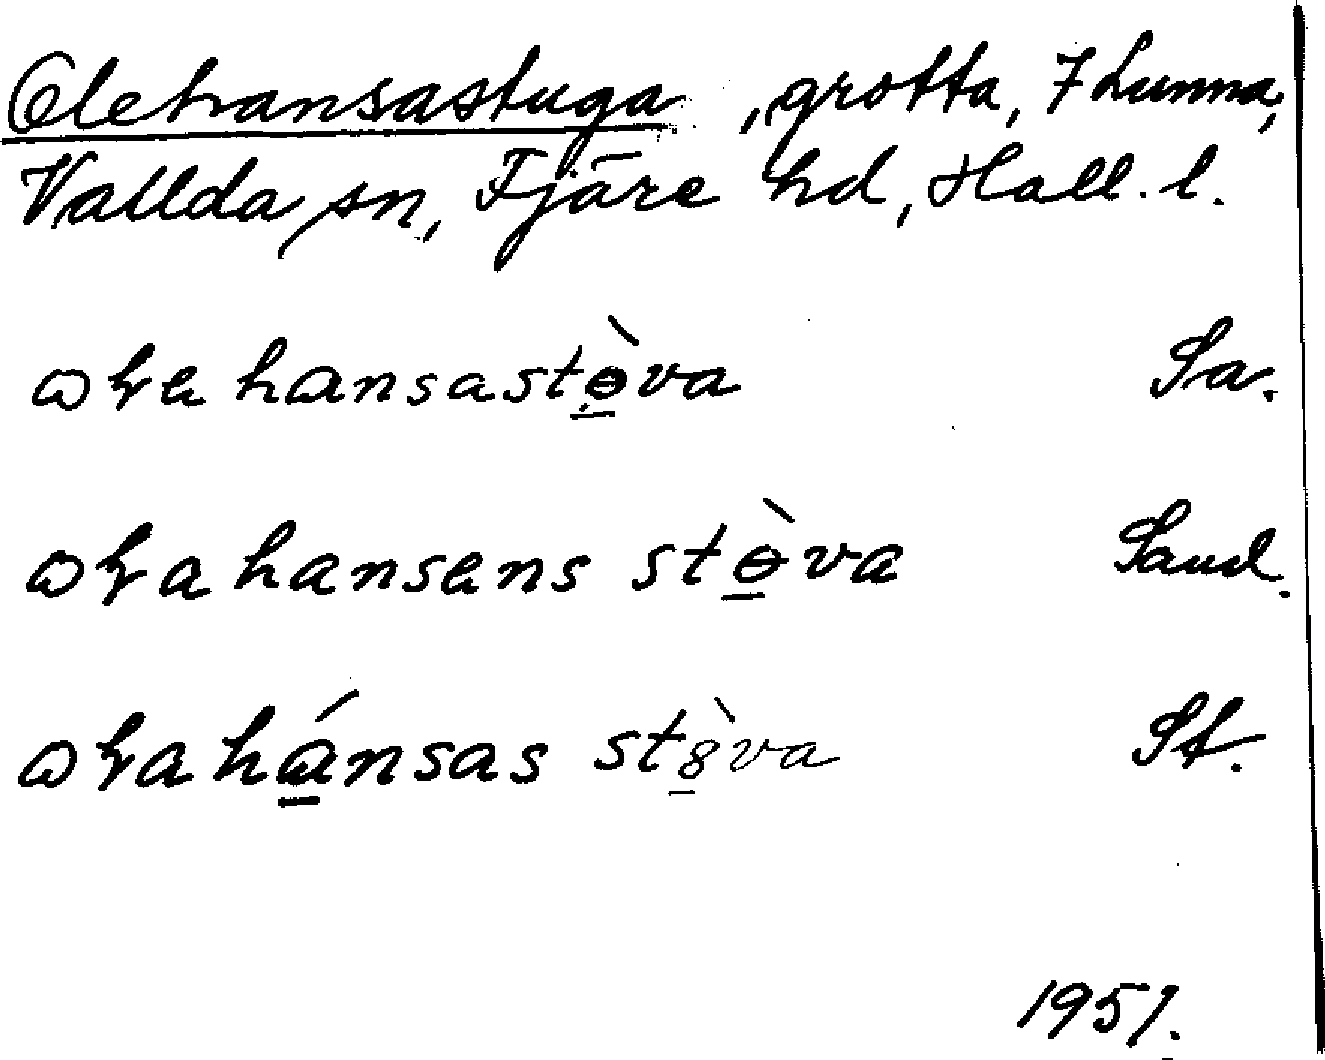 Olehansastuga, grotta, 7 Lunna,
Vallda sn, Fjäre hd, Hall. l.
ωɫa hansastɵ̀va Sa.
ωɫa hansens stɵ̀va Sand.
ωɫa hánsas st8̀va St.
1951.